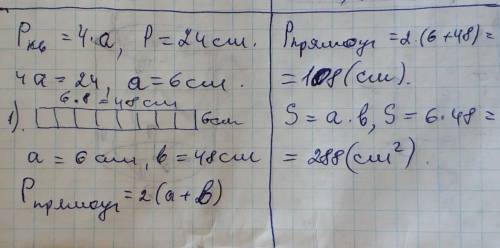 Pкв = 4·a, P = 24 см.
4a = 24, a = 6 см.
6·8 = 48 см
1). 6 см
a = 6 см, b = 48 см
Pпрямоуг = 2(a + b)
Pпрямоуг = 2·(6+48) =
= 108 (см).
S = a·b, S = 6·48 =
= 288 (см²).